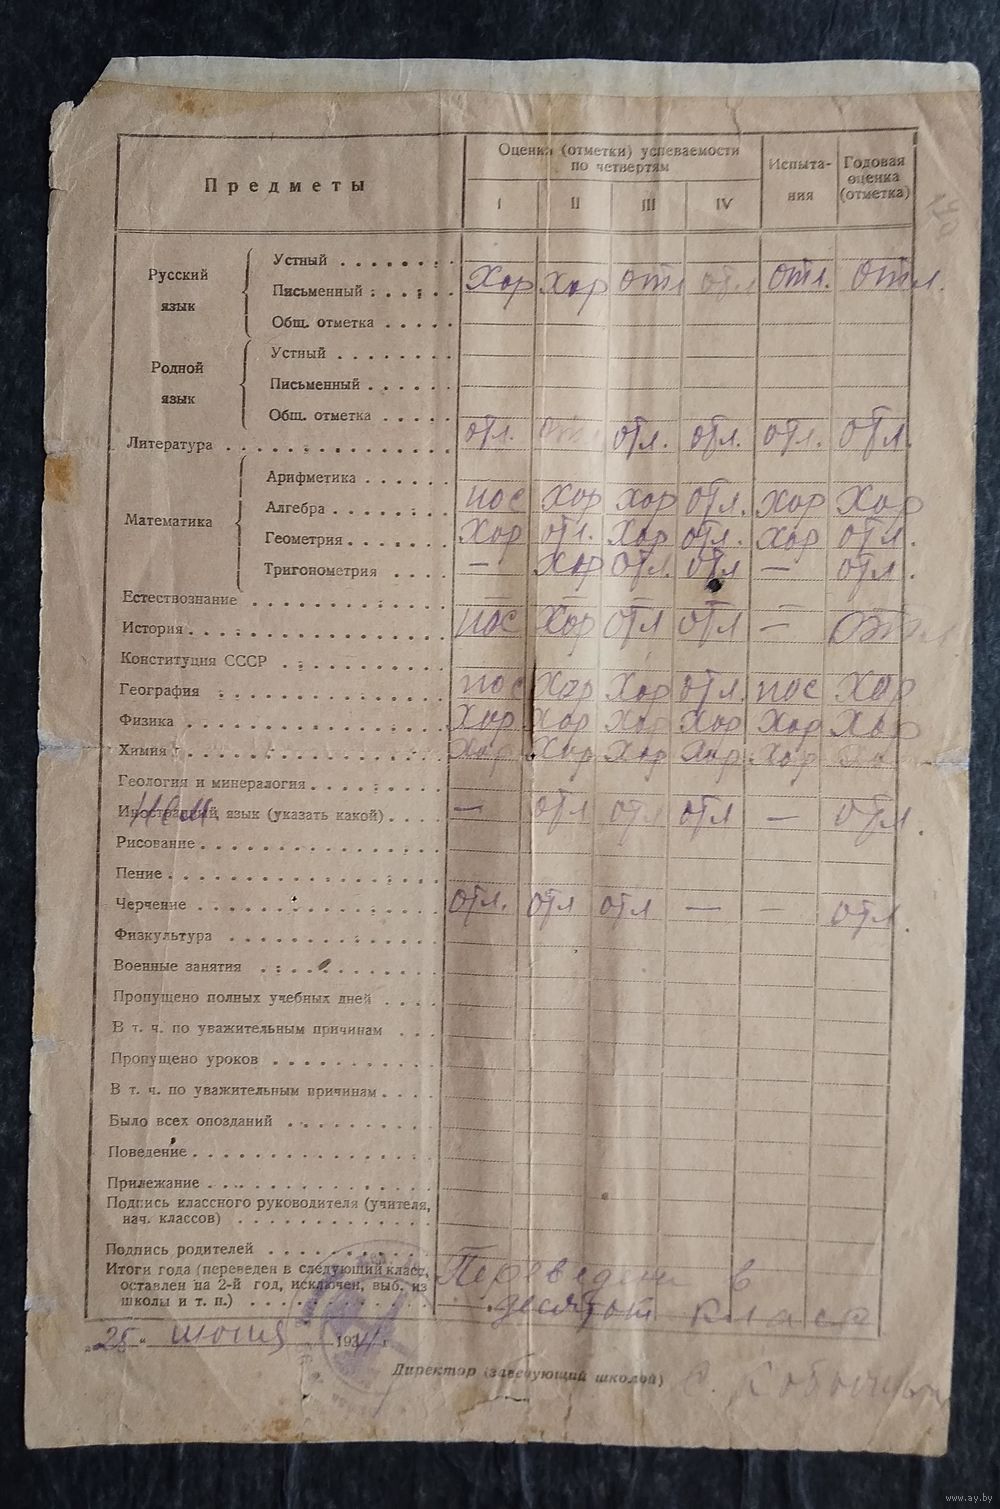 Предметы
Оценки (отметки) успеваемости
по четвертям
Испыта-
ния
Годовая
оценка
(отметка)
I II III IV
Русский
язык
Устный
Письменный Хор Хор отл отл отл. отл.
Общ. отметка
Родной
язык
Устный
Письменный
Общ. отметка
Литература отл. отл отл. отл. отл. отл.
Математика
Арифметика
Алгебра пос Хор Хор отл. Хор Хор
Геометрия Хор отл. Хор отл. Хор отл.
Тригонометрия — Хор отл. отл — отл.
Естествознание
История пос Хор отл отл — отл
Конституция СССР
География пос Хор Хор отл. пос Хор
Физика Хор Хор Хор Хор Хор Хор
Химия Хор Хор Хор Хор Хор
Геология и минералогия
Иностранный язык (указать какой) нем — отл отл отл — отл.
Рисование
Пение
Черчение отл. отл отл — — отл.
Физкультура
Военные занятия
Пропущено полных учебных дней
В т. ч. по уважительным причинам
Пропущено уроков
В т. ч. по уважительным причинам
Было всех опозданий
Поведение
Прилежание
Подпись классного руководителя (учителя,
нач. классов)
Подпись родителей
Итоги года (переведен в следующий класс,
оставлен на 2-й год, исключен, выб. из
школы и т. п.)
Переведен в
десятый класс
„25“ июня 1941 г.
Директор (заведующий школой)
www.ay.by